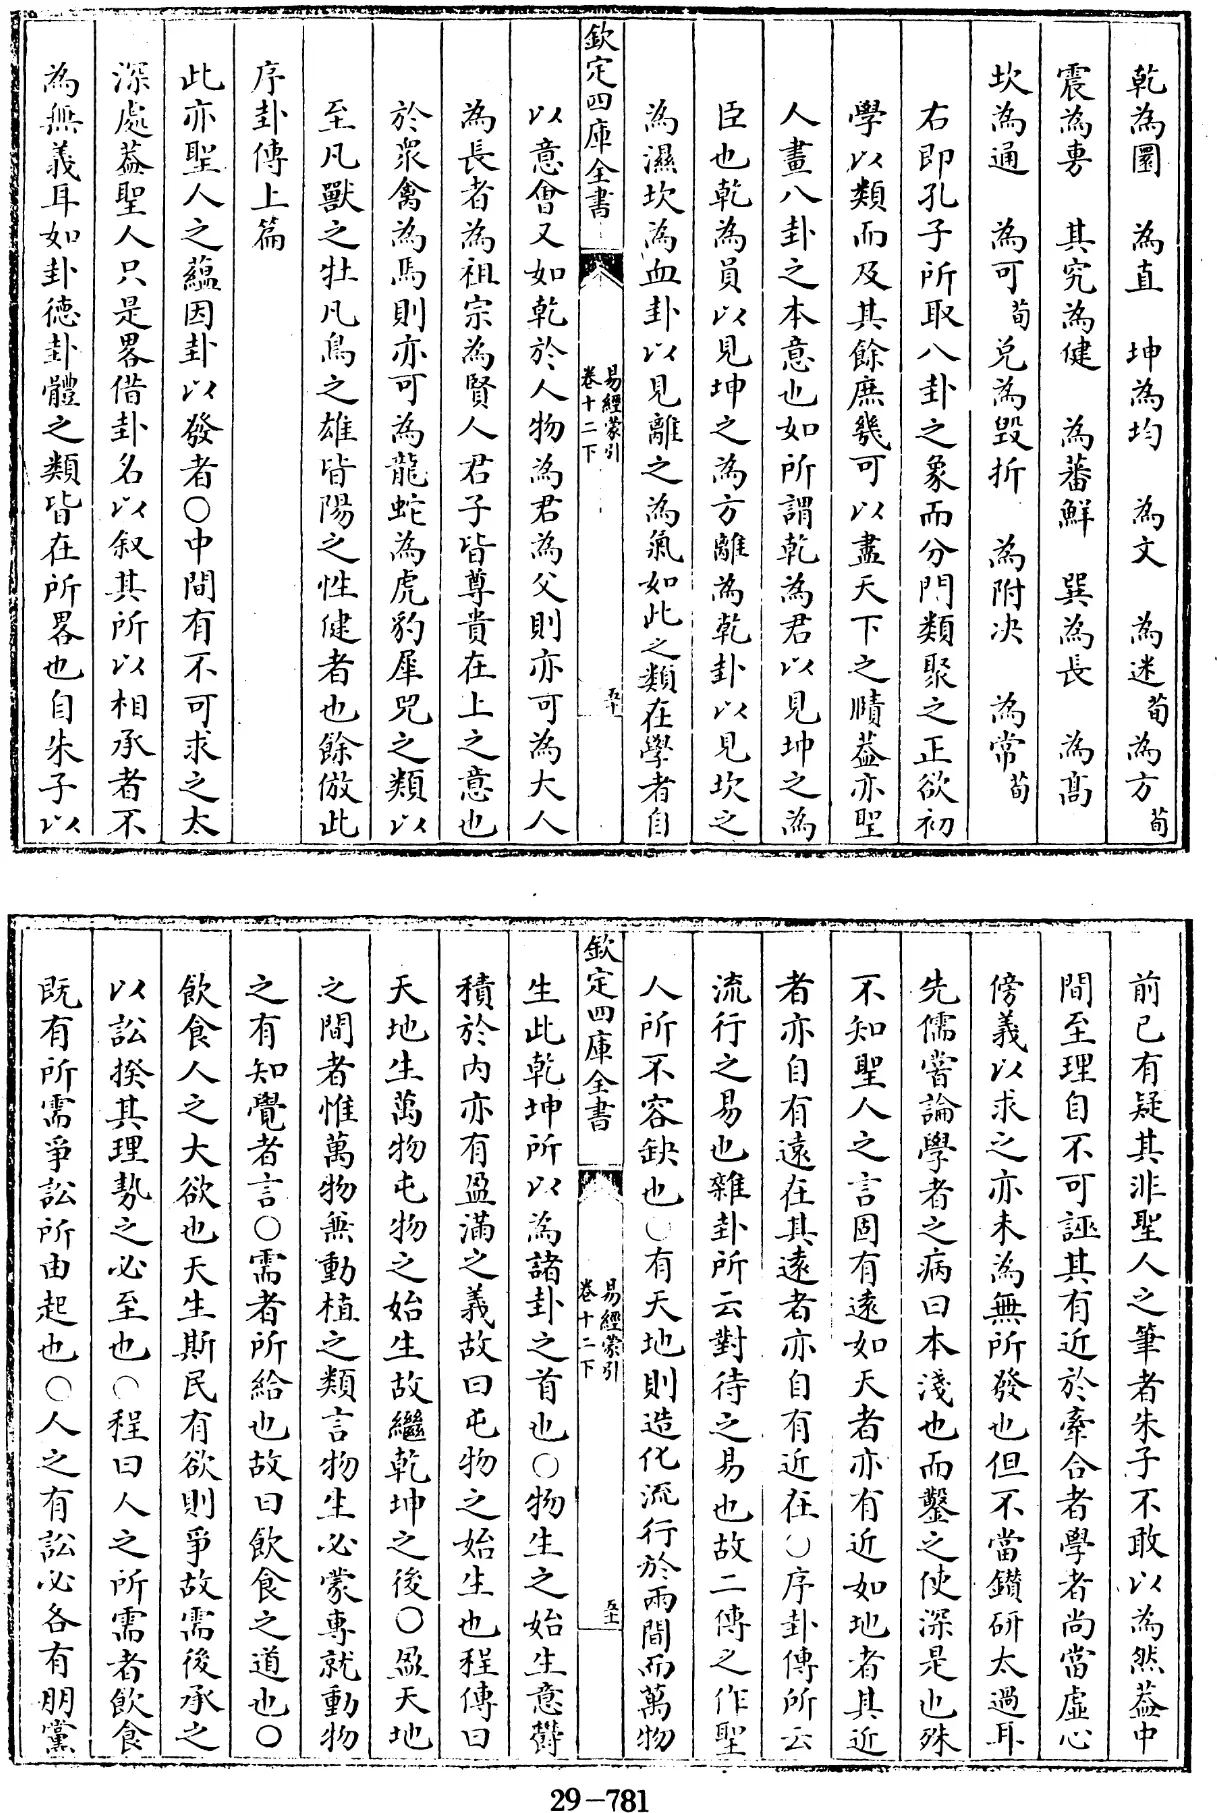 乾為圜　為直　坤為均　為文　為迷荀為方荀
震為旉　其究為健　為蕃鮮　巽為長　為髙
坎為通　為可荀兌為毁折　為附決　為常荀
右即孔子所取八卦之象而分門類聚之正欲初
學以類而及其餘庶㡬可以盡天下之賾葢亦聖
人畫八卦之本意也如所謂乾為君以見坤之為
臣也乾為員以見坤之為方離為乾卦以見坎之
為濕坎為血卦以見離之為氣如此之類在學者自
欽定四庫全書
易經蒙引
卷十二下
五十
以意會又如乾於人物為君為父則亦可為大人
為長者為祖宗為賢人君子皆尊貴在上之意也
於衆禽為馬則亦可為龍蛇為虎豹犀兕之類以
至凡獸之牡凡鳥之雄皆陽之性健者也餘倣此
序卦傳上篇
此亦聖人之藴因卦以發者○中間有不可求之太
深處葢聖人只是畧借卦名以叙其所以相承者不
為無義耳如卦德卦體之類皆在所畧也自朱子以
前已有疑其非聖人之筆者朱子不敢以為然葢中
間至理自不可誣其有近於牽合者學者尚當虛心
傍義以求之亦未為無所發也但不當鑚研太過耳
先儒嘗論學者之病曰本淺也而鑿之使深是也殊
不知聖人之言固有逺如天者亦有近如地者其近
者亦自有逺在其逺者亦自有近在○序卦傳所云
流行之易也雜卦所云對待之易也故二傳之作聖
人所不容缺也○有天地則造化流行於兩間而萬物
欽定四庫全書
易經蒙引
卷十二下
五十一
生此乾坤所以為諸卦之首也○物生之始生意欝
積於内亦有盈滿之義故曰屯物之始生也程傳曰
天地生萬物屯物之始生故繼乾坤之後○盈天地
之間者惟萬物無動植之類言物生必蒙專就動物
之有知覺者言○需者所給也故曰飲食之道也○
飲食人之大欲也天生斯民有欲則爭故需後承之
以訟揆其理勢之必至也○程曰人之所需者飲食
既有所需爭訟所由起也○人之有訟必各有朋黨
29-781